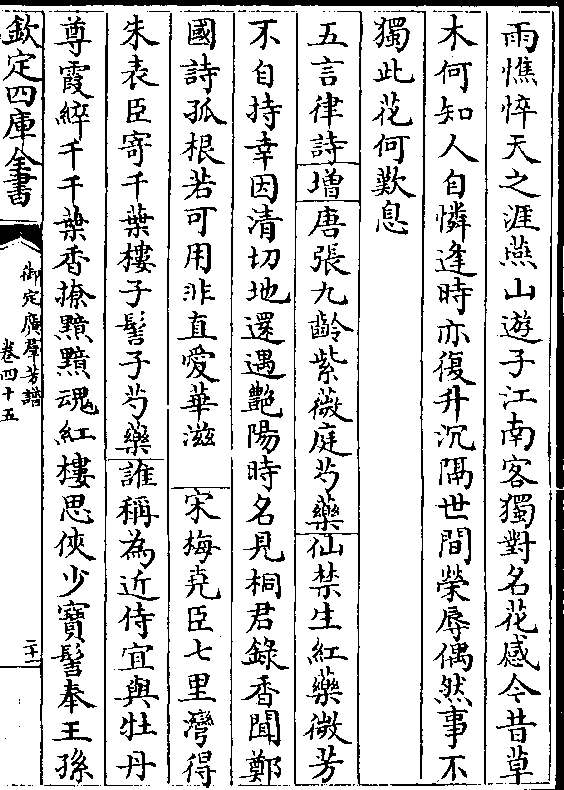 雨憔悴天之涯燕山遊子江南客獨對名花感今昔草
木何知人自憐逢時亦復升沉隔世間榮辱偶然事不
獨此花何歎息
五言律詩增唐張九齡紫薇庭芍藥仙禁生紅藥微芳
不自持幸因清切地還遇艷陽時名見桐君錄香聞鄭
國詩孤根若可用非直愛華滋 宋梅堯臣七里灣得
朱表臣寄千葉樓子髻子芍藥誰稱為近侍宜與牡丹
尊霞綷千千葉香撩黯黯魂紅樓思俠少寶髻奉王孫
欽定四庫全書
御定廣羣芳譜
卷四十五
二十一